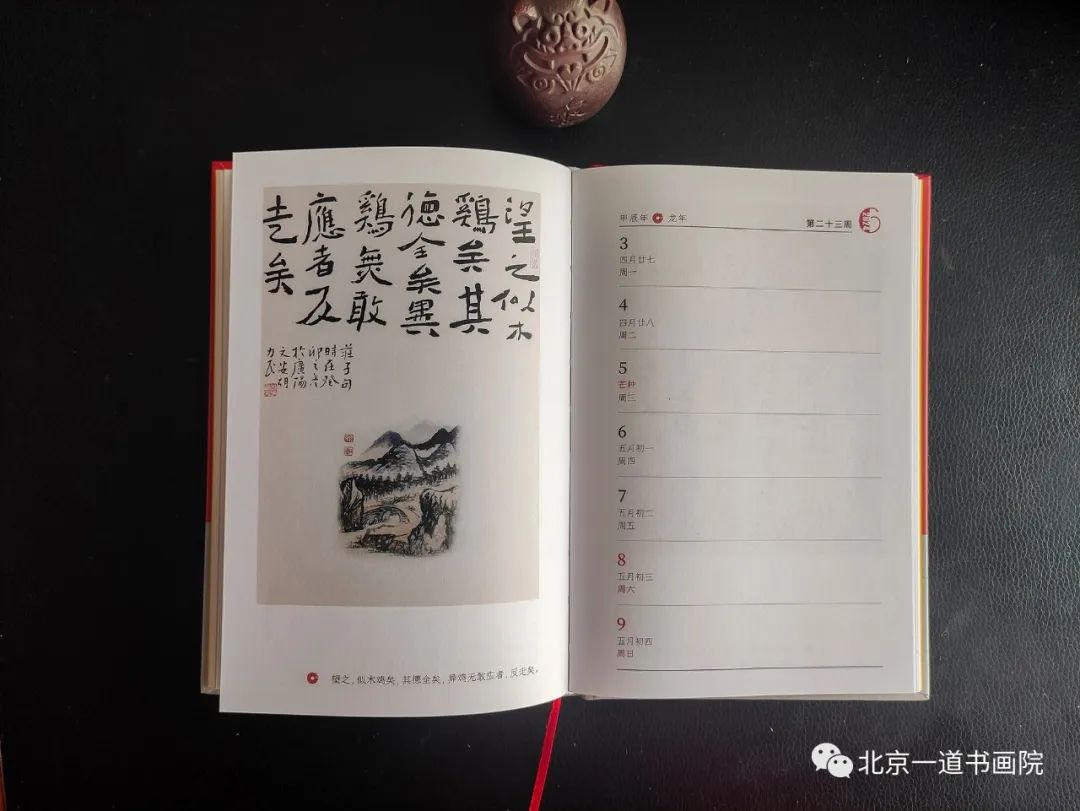 望之似木
鷄矣其
德全矣異
鷄無敢
應者反
走矣
莊子句
時在癸
卯之冬
於廣陽
文安胡
力民
望之，似木鸡矣，其德全矣，异鸡无敢应者，反走矣。
甲辰年 龙年
第二十三周
6
2024
3
四月廿七
周一
4
四月廿八
周二
5
芒种
周三
6
五月初一
周四
7
五月初二
周五
8
五月初三
周六
9
五月初四
周日
北京一道书画院